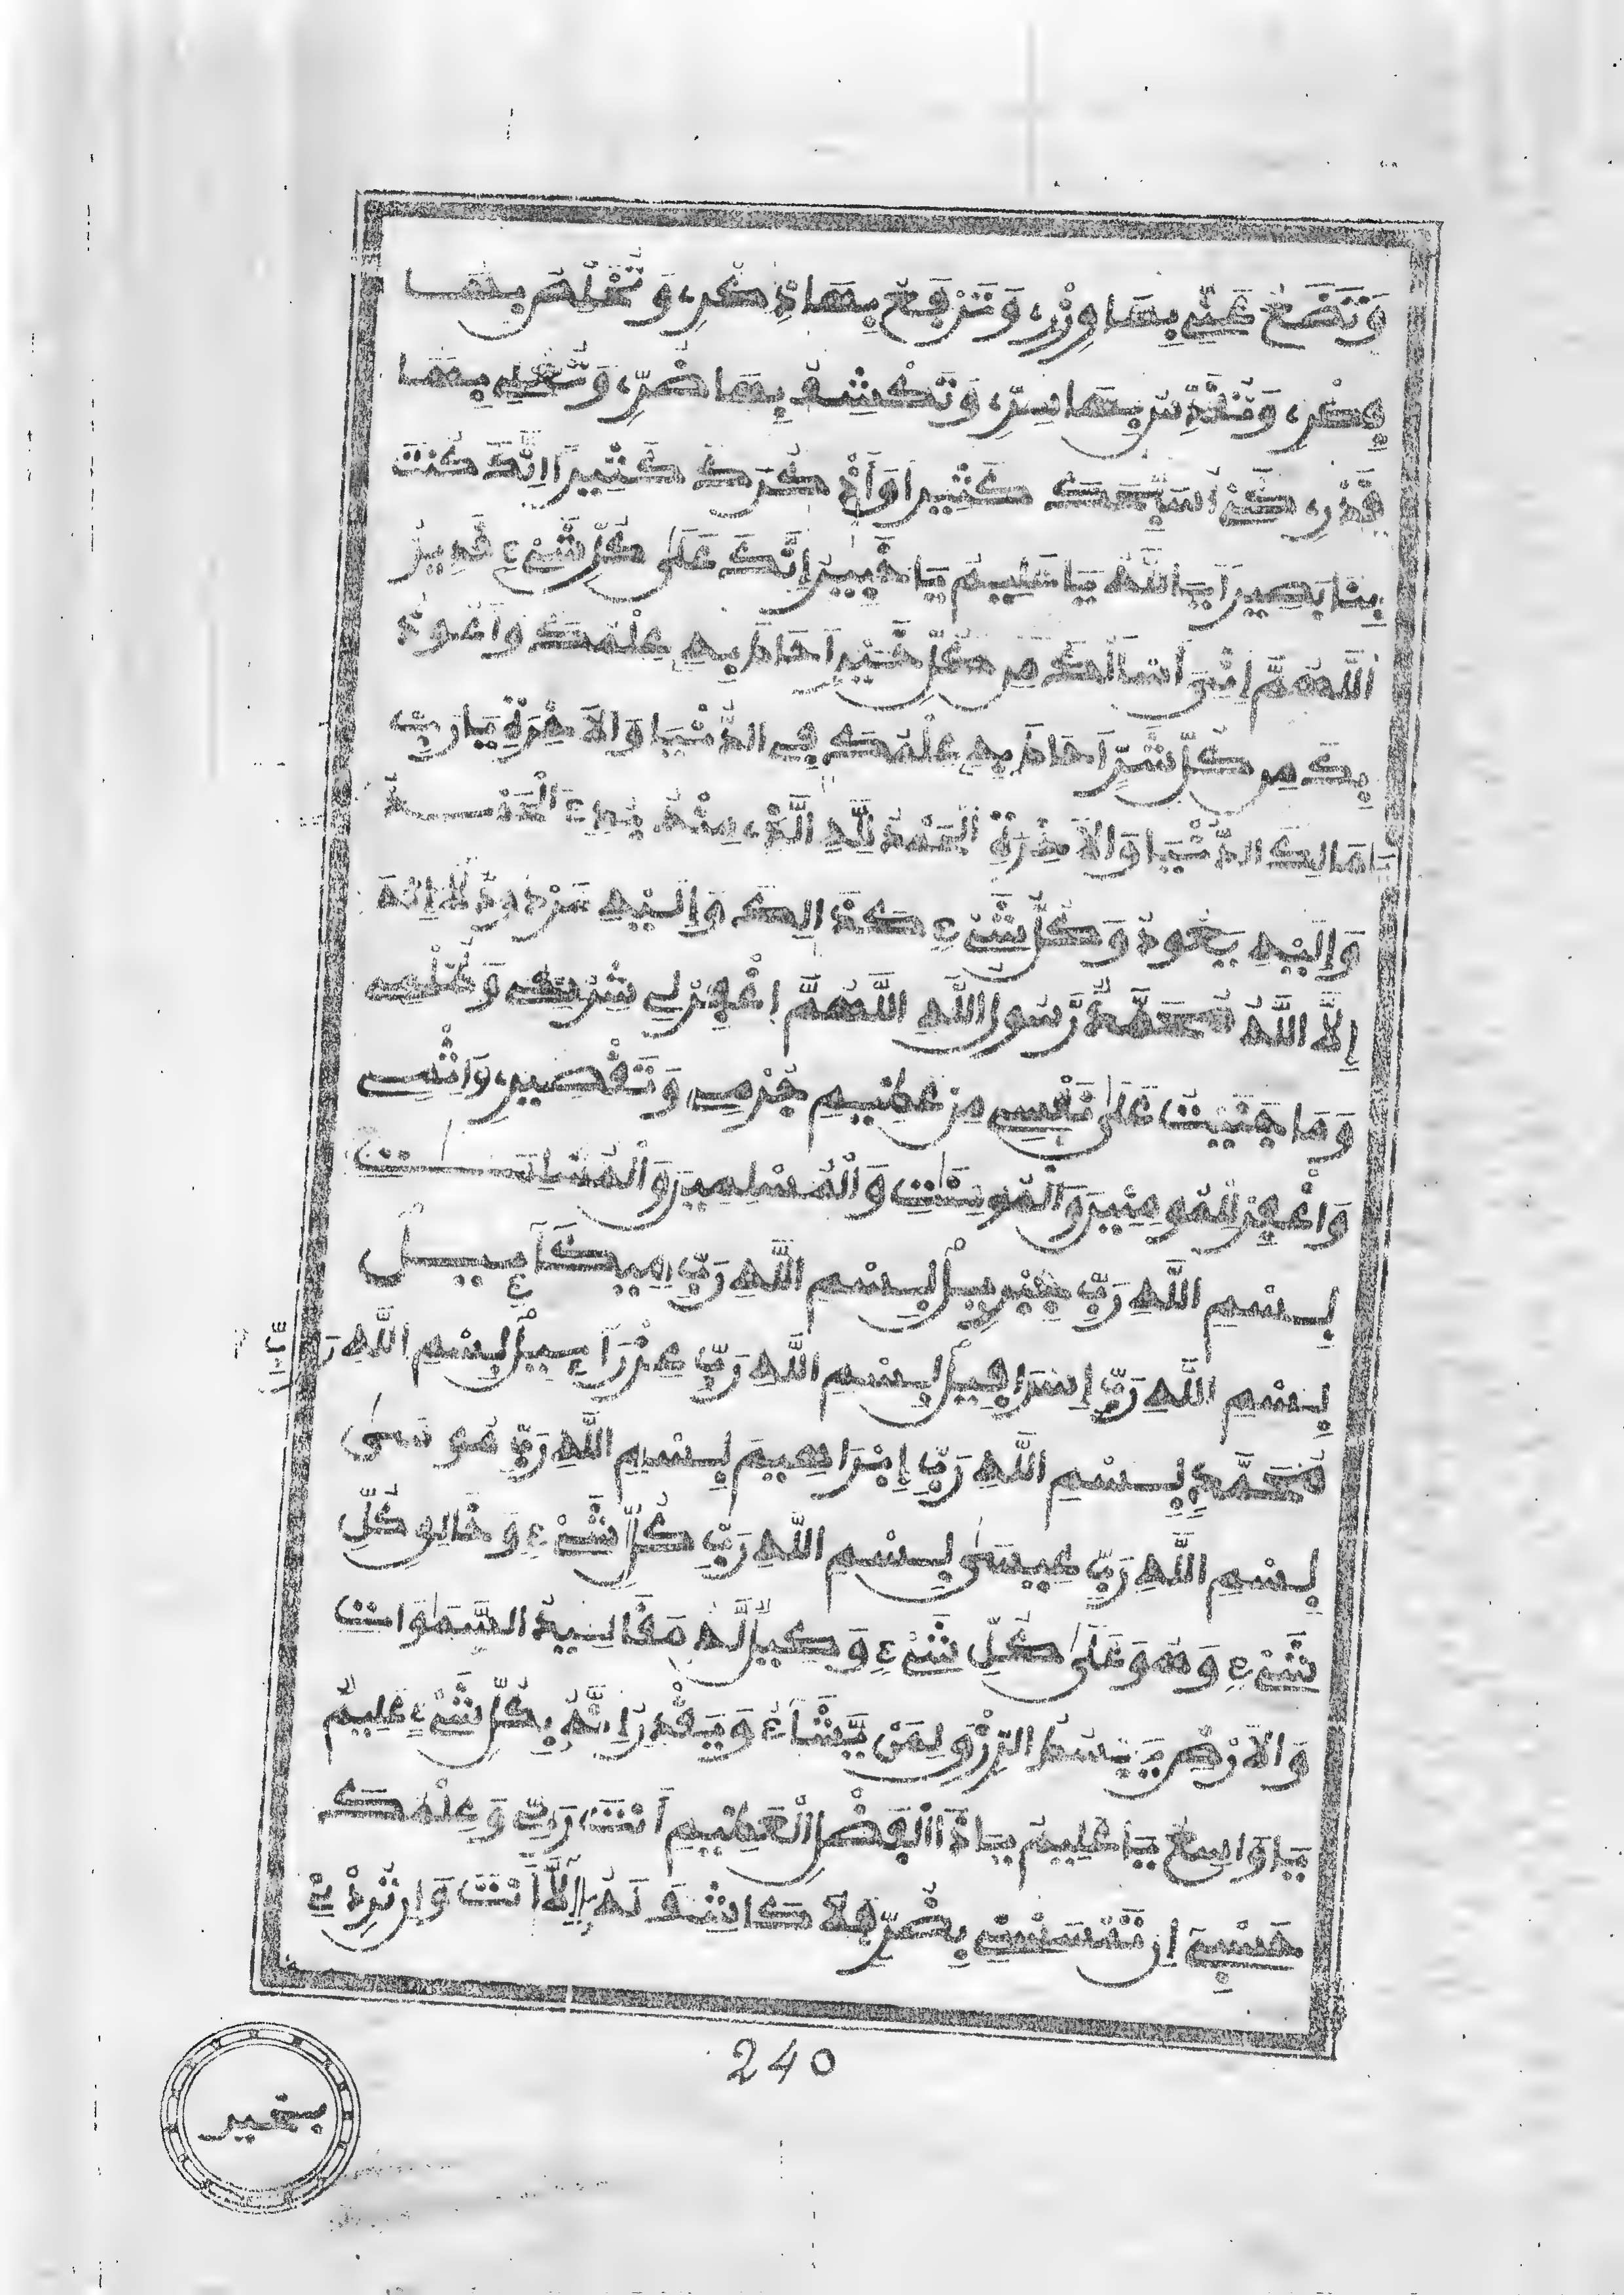 وَتَضَعُ عَنِّي بِهَا وِزْرِي وَتَرْفَعُ بِهَا ذِكْرِي وَتُعَظِّمُ بِهَا
فِكْرِي وَتُقَدِّسُ بِهَا سِرِّي وَتَكْشِفُ بِهَا ضُرِّي وَتُعْلِي بِهَا
قَدْرِي كَيْ أُسَبِّحَكَ كَثِيرًا وَأَذْكُرَكَ كَثِيرًا إِنَّكَ كُنتَ
بِنَا بَصِيرًا يَا اللَّهُ يَا عَلِيمُ يَا خَبِيرُ إِنَّكَ عَلَى كُلِّ شَيْءٍ قَدِيرٌ
اللَّهُمَّ إِنِّي أَسْأَلُكَ مِن كُلِّ خَيْرٍ أَحَاطَ بِهِ عِلْمُكَ وَأَعُوذُ
بِكَ مِن كُلِّ شَرٍّ أَحَاطَ بِهِ عِلْمُكَ فِي الدُّنْيَا وَالآخِرَةِ يَا رَبِّ
يَا مَالِكَ الدُّنْيَا وَالآخِرَةِ الْحَمْدُ لِلَّهِ الَّذِي مِنْهُ بُدِئَ الْحَمْدُ
وَإِلَيْهِ يَعُودُ وَكُلُّ شَيْءٍ كَذَالِكَ وَإِلَيْهِ مَرْدُودٌ لَا إِلَهَ
إِلَّا اللَّهُ مُحَمَّدٌ رَّسُولُ اللَّهِ اللَّهُمَّ اغْفِرْ لِي شِرْكِي وَظُلْمِي
وَمَا جَنَيْتُ عَلَى نَفْسِي مِنْ عَظِيمِ جُرْمِي وَتَقْصِيرِي وَاثْمِي
وَاغْفِرْ لِلْمُومِنِينَ وَالْمُومِنَاتِ وَالْمُسْلِمِينَ وَالْمُسْلِمَاتِ
بِسْمِ اللَّهِ رَبِّ جِبْرِيلَ بِسْمِ اللَّهِ رَبِّ مِيكَآءِيلَ
بِسْمِ اللَّهِ رَبِّ إِسْرَافِيلَ بِسْمِ اللَّهِ رَبِّ عِزْرَآءِيلَ بِسْمِ اللَّهِ رَبِّ
مُحَمَّدٍ بِسْمِ اللَّهِ رَبِّ إِبْرَاهِيمَ بِسْمِ اللَّهِ رَبِّ مُوسَى
بِسْمِ اللَّهِ رَبِّ عِيسَى بِسْمِ اللَّهِ رَبِّ كُلِّ شَيْءٍ وَخَالِقِ كُلِّ
شَيْءٍ وَهُوَ عَلَى كُلِّ شَيْءٍ وَكِيلٌ لَّهُ مَقَالِيدُ السَّمَوَاتِ
وَالأَرْضِ يَبْسُطُ الرِّزْقَ لِمَنْ يَّشَآءُ وَيَقْدِرُ إِنَّهُ بِكُلِّ شَيْءٍ عَلِيمٌ
يَا وَاسِعُ يَا عَلِيمُ يَا ذَا الْفَضْلِ الْعَظِيمِ أَنتَ رَبِّي وَعِلْمُكَ
حَسْبِي إِن تَمْسَسْنِي بِضُرٍّ فَلَا كَاشِفَ لَهُ إِلَّا أَنتَ وَإِن تُرِدْنِي
240
بخير